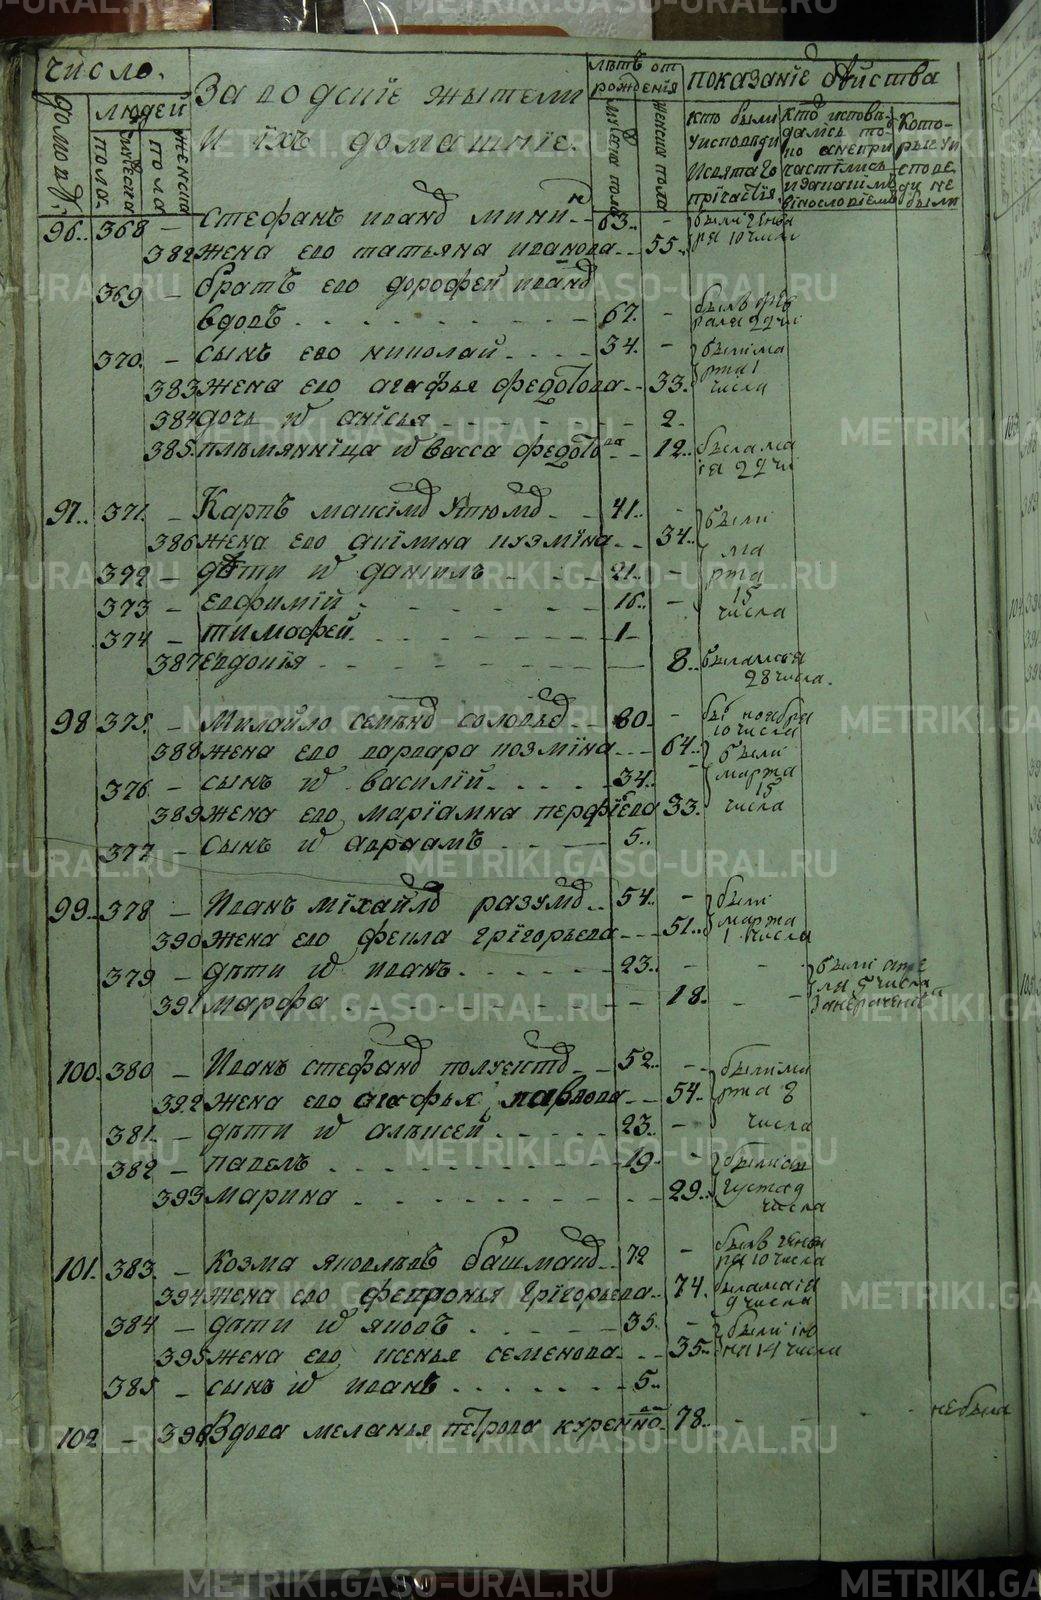 METRIKI.GASO-URAL.RU
число.
Заводскіе жытели
И ихъ домашніе.
лѣтъ от
рожденія
показаніе действа
людей
домовъ.
мужеска
пола.
женска
пола
мужеска пола
женска пола
кто были
уисповѣди
Исвятаго
причастія
кто испове
дались то
но
причастились
Кото
рые уи
спове
ди не
были
96.. 368 – Стефанъ иванов минин – 63..
были генва
ря 10 числ
382 жена его татьяна иванова 55..
369 – братъ его дорофей иванов
вдовъ 67. –
былъ фев
раля 22 чи
370. – сынъ его николай 34. –
были ма
рта 1
числа
383 жена его агафья федотова 33.
384 дочь их анисья 2.
385. племянница их васса федотова 12..
была ма
22 чи
97.. 371. – Карпъ максимов 41.. –
были
ма
рта
15
числа
386 жена его акилина кузмина 34..
372 – дѣти их даниилъ 21.. –
373 – евфимий 16.. –
374 – тимофей 1 –
387 евдокия 8..
была
28 числа.
98 375. – Михайло семенов соловьев 80. –
бы ноября
10 числа
388 жена его варвара козмина 64..
были
марта
15
числа
376 – сынъ их василий 34..
389 жена его мариамна перфиева 33.
377 – сынъ их авраамъ 5..
99.. 378 – Иванъ михайлов разумов 54.. –
были
марта
1 числа
390 жена его фекла григорьева 51..
379 – дѣти их иванъ 23.. – –
были апре
ля 5 числа
391 марфа 18. – –
100. 380 – Иванъ стефанов полуектов 52.. –
были ма
рта 8
числа
392 жена его агафья павлова 54.
381. – дѣти их алексей 23.. –
382 – павелъ 19. –
были ав
густа
числа
393 марина 29..
101. 383. – козма яковлевъ башмаков 72 –
былъ генва
ря 10 числа
394 жена его февронья григорьева 74.
была
9 числа
384 – дѣти их яковъ 35. –
были ию
ня 14 числа
395 жена его ксенья семенова 35..
385 – сынъ их иванъ 5..
102 – 396 Вдова меланья петрова 78.. – – –
небыла